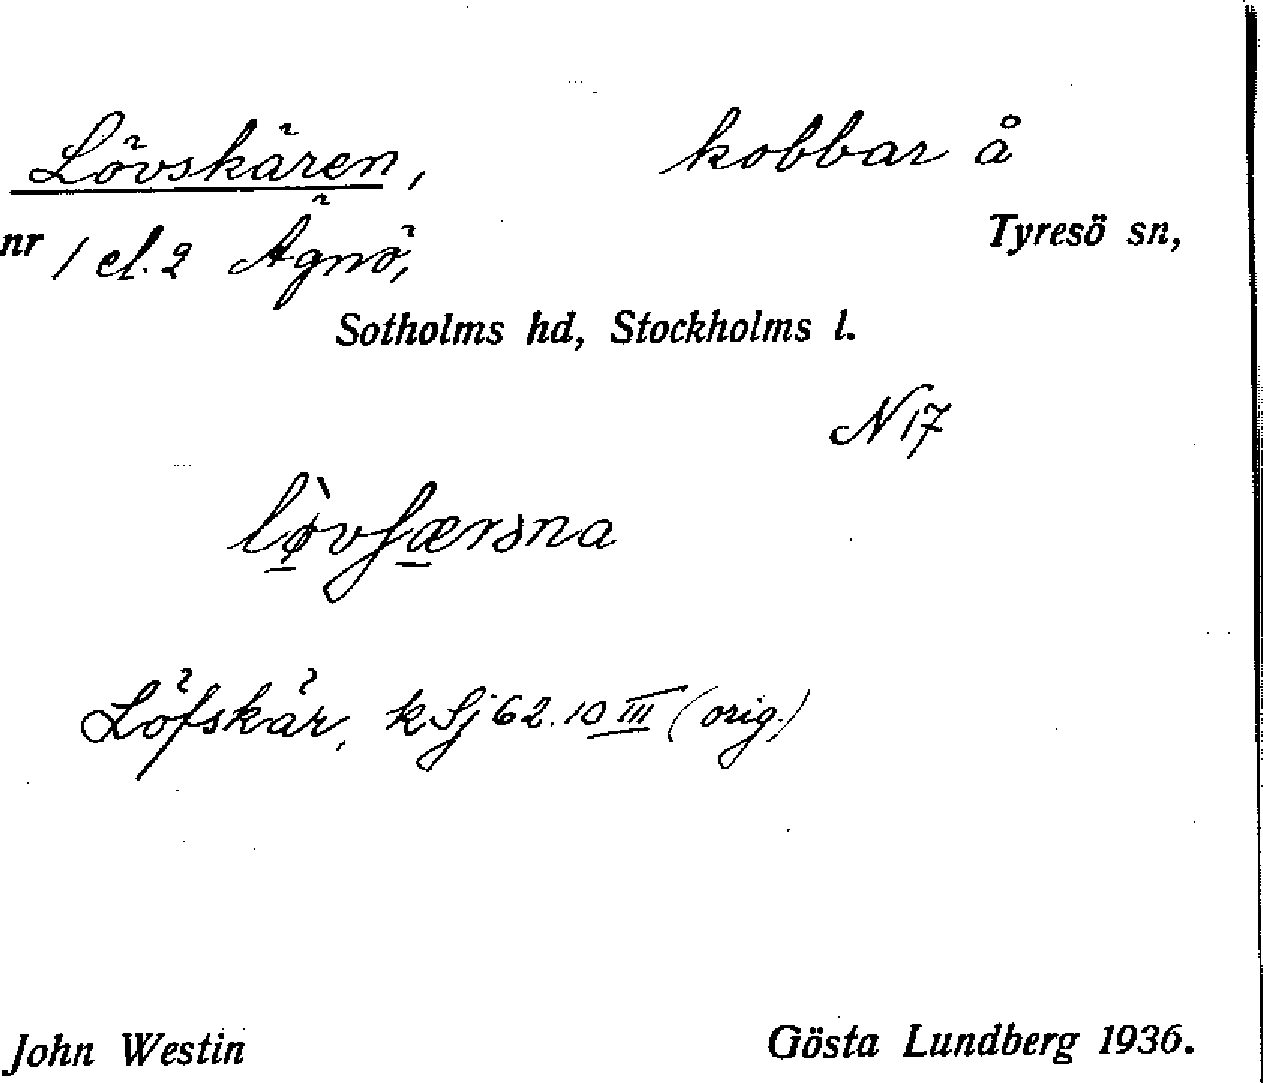 Lövskären, kobbar å
nr 1 el. 2 Ägnö, Tyresö sn,
Sotholms hd, Stockholms l.
N 17
lø̠̀vʃæ̠rsna
Löfskär, k Sj 62.10 III (orig.)
John Westin Gösta Lundberg 1936.